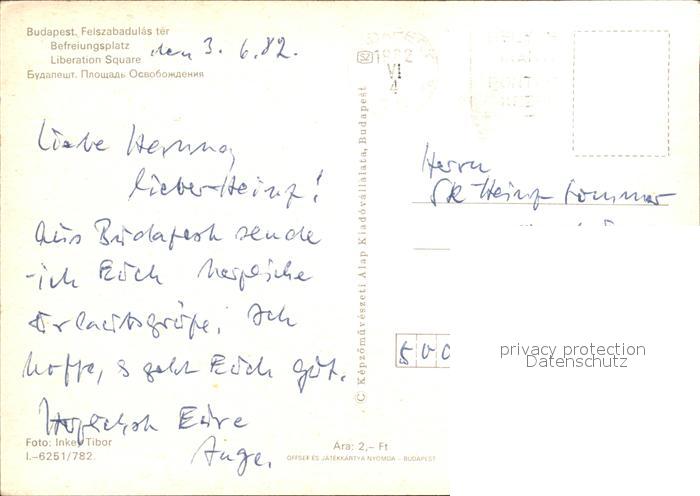 Budapest. Felszabadulás tér
Befreiungsplatz
Liberation Square
Будапешт. Площадь Освобождения
den 3. 6. 82.
1982
VI
4
Liebe
lieber Heinz!
Aus Budapest sende
ich Euch herzliche
Urlaubsgrüße. Ich
hoffe, es geht Euch gut.
Herzlichst Eure
Inge.
Foto: Inkey Tibor
I.-6251/782
(C) Képzőművészeti Alap Kiadóvállalata, Budapest
Ára: 2,– Ft
OFFSET ÉS JÁTÉKKÁRTYA NYOMDA – BUDAPEST
Herrn
Heinz Sommer
500
privacy protection
Datenschutz